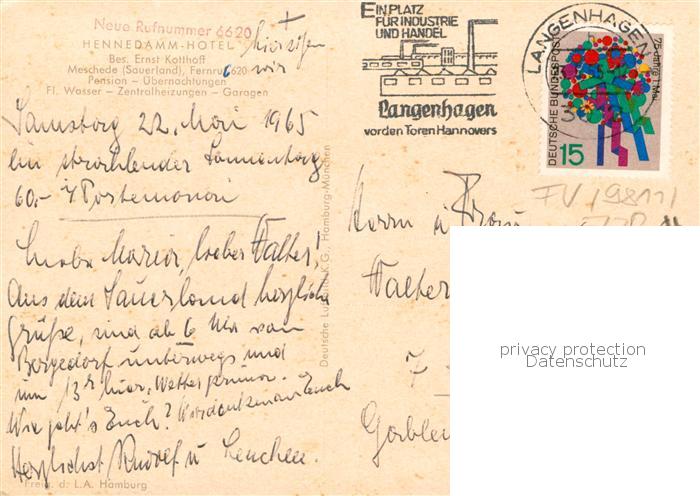 Neue Rufnummer 6620
HENNEDAMM-HOTEL
Bes. Ernst Kotthoff
Meschede (Sauerland), Fernruf 6620
Pension – Übernachtungen
Fl. Wasser – Zentralheizungen – Garagen
+
hier
wir
EIN PLATZ
FÜR INDUSTRIE
UND HANDEL
Langenhagen
vor den Toren Hannovers
LANGENHAGEN
DEUTSCHE BUNDESPOST
15
75 Jahre 1. Mai
Samstag 22. Mai 1965
ein strahlender Sonnentag
60.- Portemonai
Liebe Maria, lieber Walter!
Aus dem Sauerland herzliche
Grüße, sind ab 6 Uhr von
Bergedorf unterwegs und
um 13 h hier, Wetter prima.
Wie geht's Euch? Wir denken an Euch
Herzlichst Rudolf u Lenchen.
Freig. d. L.A. Hamburg
Deutsche K.G., Hamburg-München
Herrn u Frau
Walter
7
privacy protection
Datenschutz